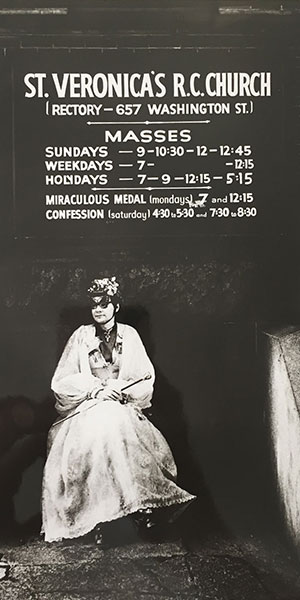 ST. VERONICA'S R.C. CHURCH
(RECTORY – 657 WASHINGTON ST.)
MASSES
SUNDAYS – 9 – 10:30 – 12 – 12:45
WEEKDAYS – 7 – – 12:15
HOLYDAYS – 7 – 9 – 12:15 – 5:15
MIRACULOUS MEDAL (mondays) 7 and 12:15
CONFESSION (saturday) 4:30 to 5:30 and 7:30 to 8:30